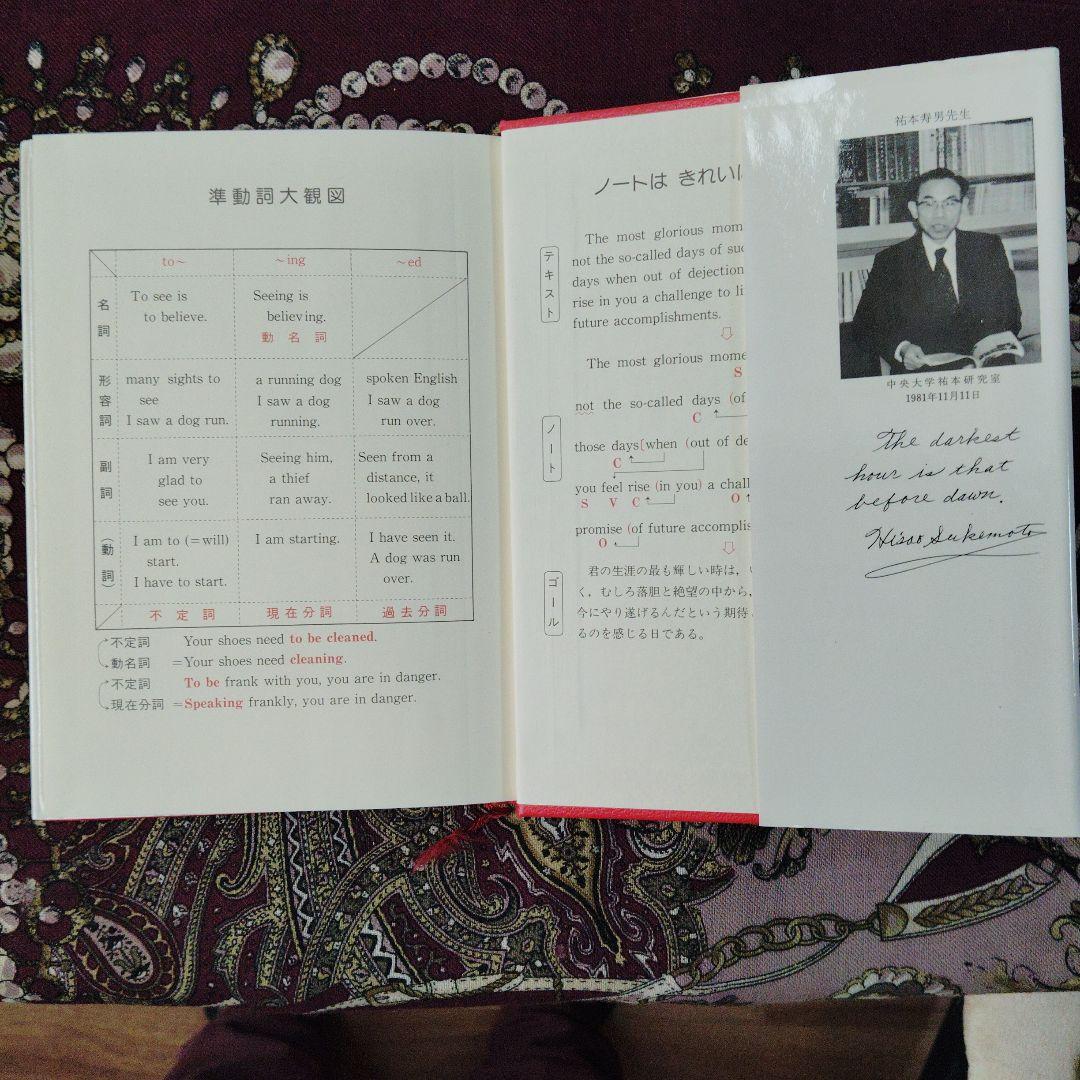 準動詞大観図
to～ ～ing ～ed
名詞
To see is
to believe.
Seeing is
believing.
動名詞
形容詞
many sights to
see
I saw a dog run.
a running dog
I saw a dog
running.
spoken English
I saw a dog
run over.
副詞
I am very
glad to
see you.
Seeing him,
a thief
ran away.
Seen from a
distance, it
looked like a ball.
(動詞)
I am to (=will)
start.
I have to start.
I am starting.
I have seen it.
A dog was run
over.
不定詞 現在分詞 過去分詞
不定詞 Your shoes need to be cleaned.
動名詞 =Your shoes need cleaning.
不定詞 To be frank with you, you are in danger.
現在分詞 =Speaking frankly, you are in danger.
ノートは きれいに
テキスト
The most glorious mom
not the so-called days of suc
days when out of dejection
rise in you a challenge to li
future accomplishments.
ノート
The most glorious mome
S
not the so-called days (of
C
those days[when (out of de
C
you feel rise (in you) a chall
S V C O
promise (of future accomplis
O
ゴール
君の生涯の最も輝しい時は，い
く，むしろ落胆と絶望の中から，
今にやり遂げるんだという期待と
るのを感じる日である。
祐本寿男先生
中央大学祐本研究室
1981年11月11日
The darkest
hour is that
before dawn.
Hisao Sukemoto